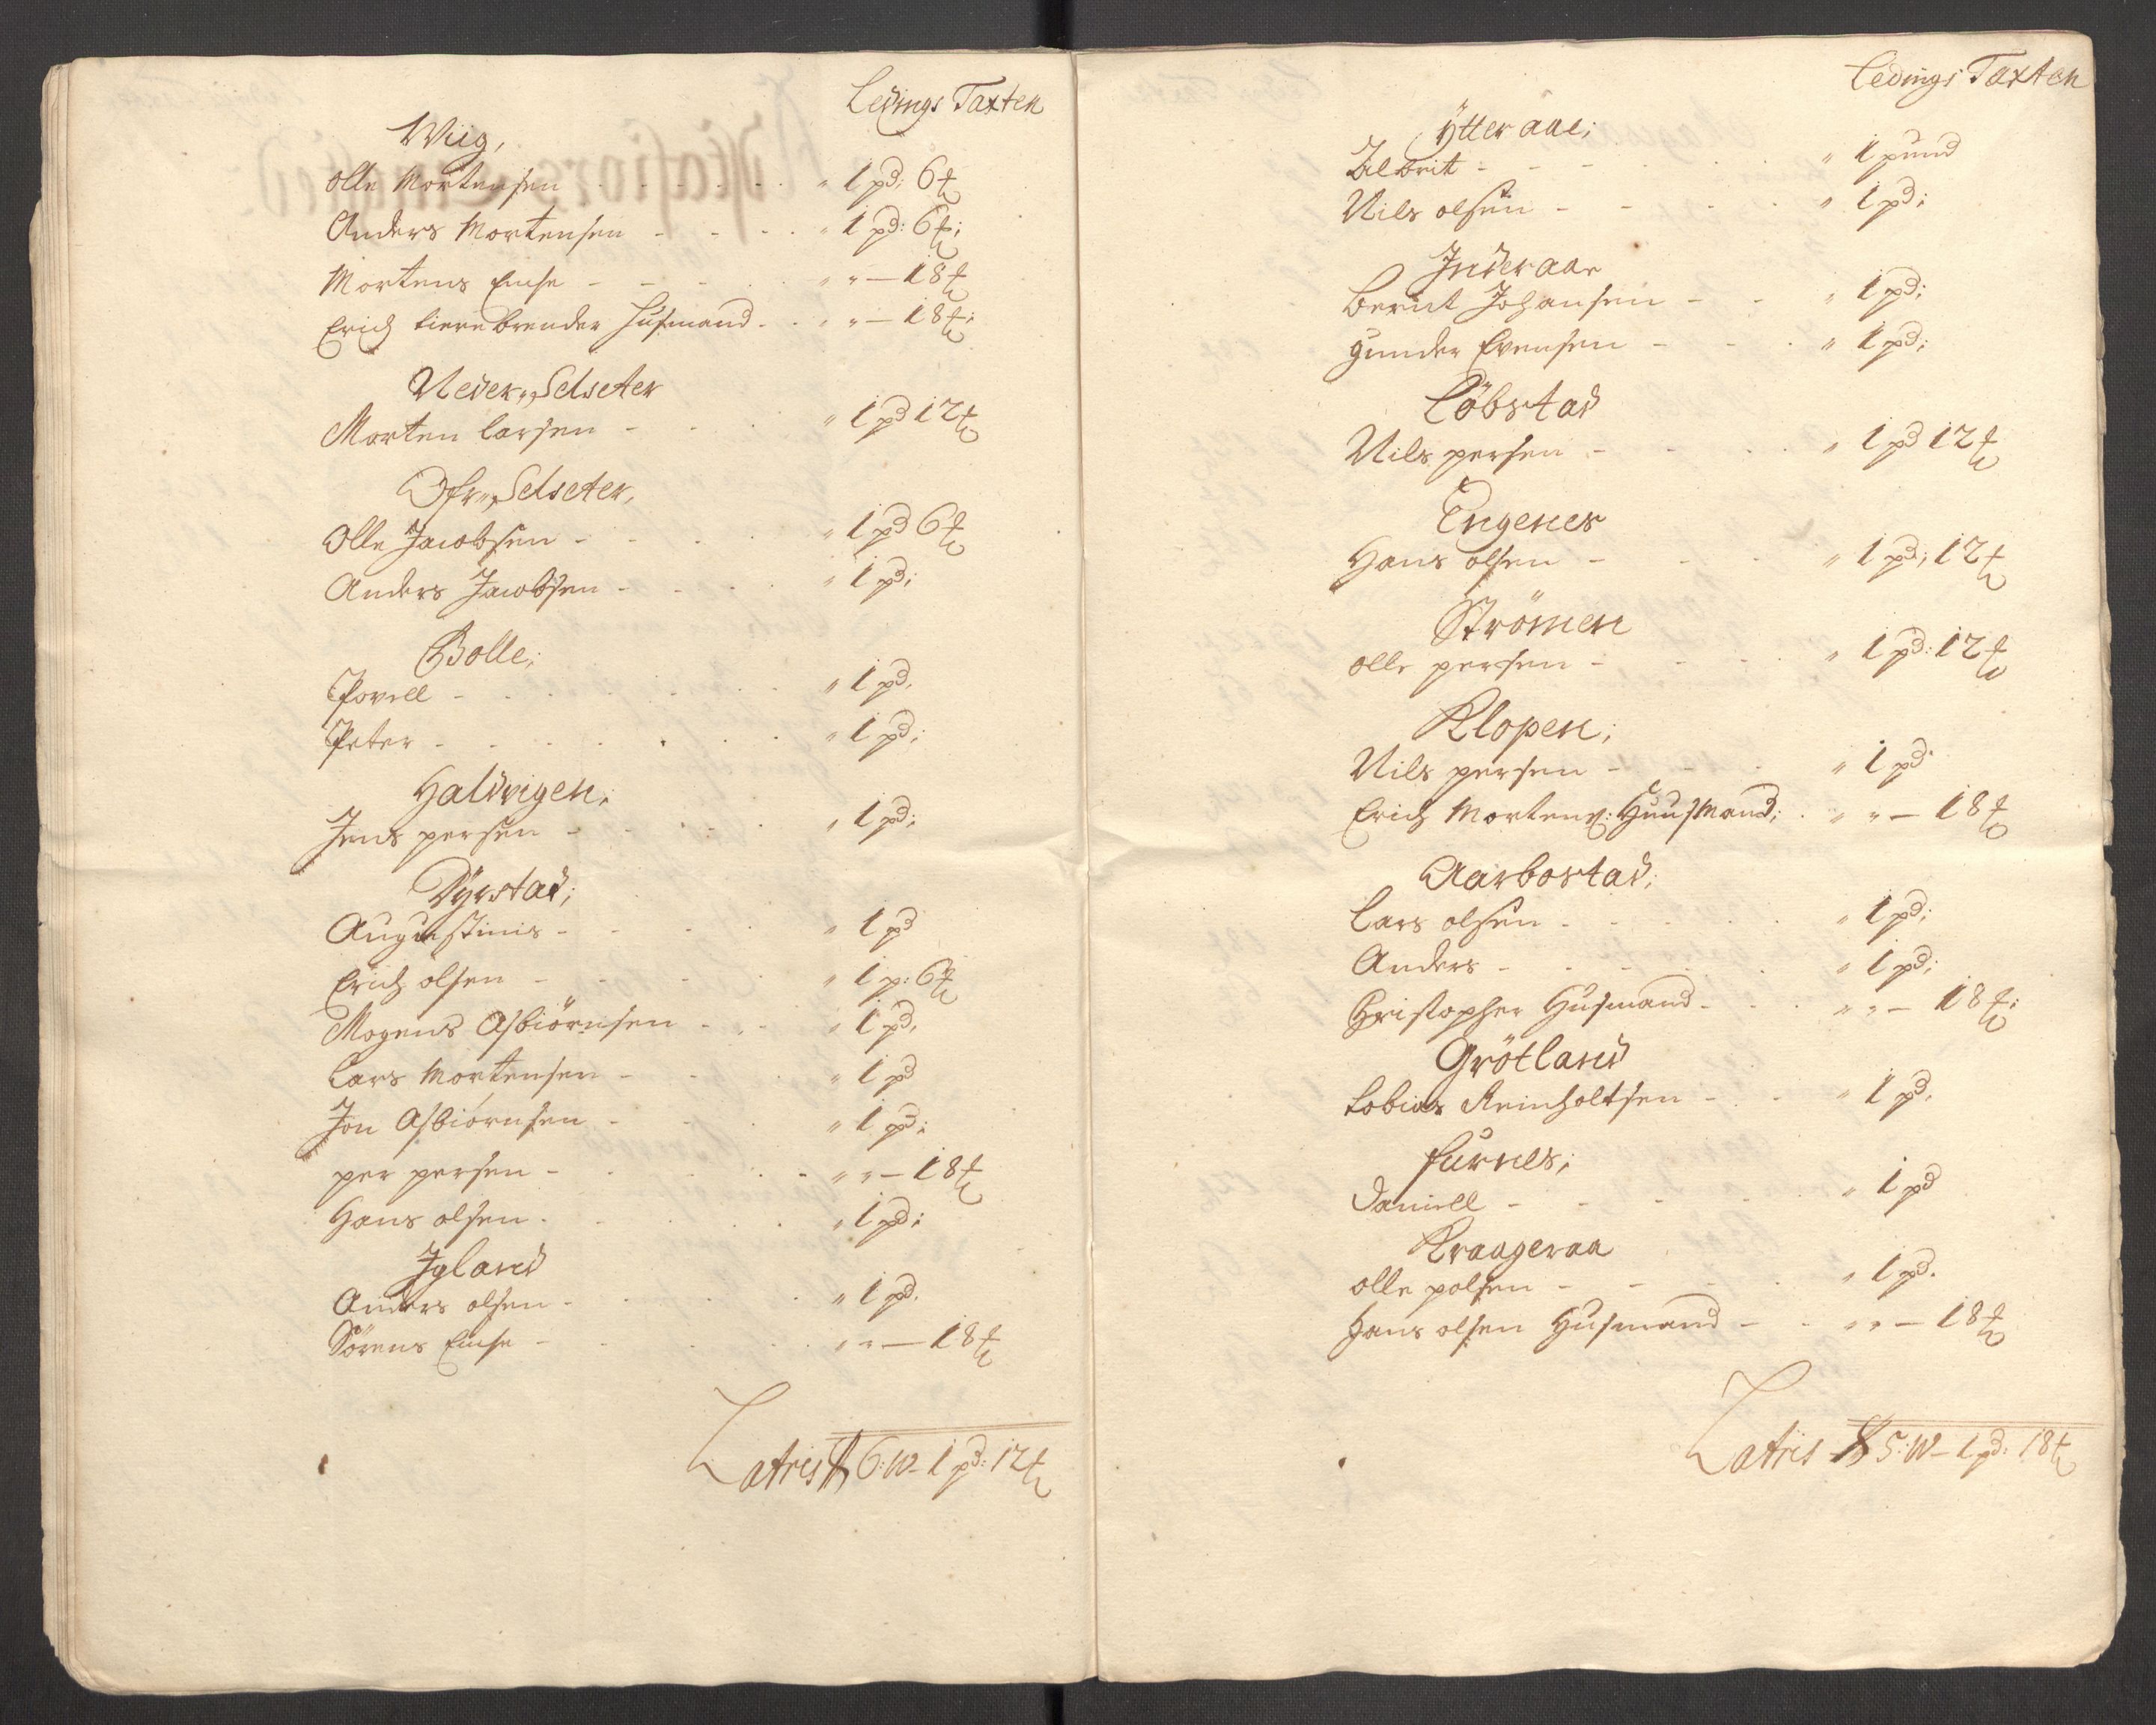 Ledings Taxten
Wiig,
Olle Mortensen - - - - - " 1 pd; 6 ℔
Anders Mortensen - - - " 1 pd: 6 ℔;
Mortens Encke - - - " " — 18 ℔
Erich tierebrender Husmand - " " — 18 ℔;
Neder Selseter
Morten Larsen - - - " 1 pd 12 ℔
Ofr Selseter,
Olle Jacobsen - - - " 1 pd 6 ℔
Anders Jacobsen - - - " 1 pd;
Bolle;
Povell - - - - - " 1 pd,
Peter - - - - - " 1 pd;
Haldvigen;
Jens persen - - - - " 1 pd;
Dÿrstad;
Augustinis - - - - " 1 pd
Erich olsen - - - - " 1 p: 6 ℔
Mogens Asbiörnsen - - " 1 pd,
Lars Mortensen - - - " 1 pd
Jon Asbiörnsen - - - " 1 pd;
per persen - - - - " " — 18 ℔
Hans olsen - - - - " 1 pd;
Igland
Anders olsen - - - - " 1 pd.
Sörens Encke - - - - " " — 18 ℔
Latris 6: W - 1 pd: 12 ℔
Ledings Taxten
Ÿtter aae;
Albrit - - - - " 1 pund
Nils olsen - - - - " 1 pd;
Inder aae
Bernt Johansen - - " 1 pd;
Gunder Evensen - - " 1 pd;
Löbstad
Nils persen - - - " 1 pd 12 ℔
Engenes
Hans olsen - - - " 1 pd; 12 ℔
Strömen
olle persen - - - " 1 pd: 12 ℔
Klopen;
Nils persen - - - " 1 pd
Erich Mortens: Huusmand; " " — 18 ℔
Aarbostad;
Lars olsen - - - - " 1 pd;
Anders - - - - - " 1 pd;
Christopher Husmand - - " " — 18 ℔;
Grötland
Tobias Reinholtsen - - " 1 pd,
Furnes;
Daniell - - - - - " 1 pd
Kraageraa
olle polsen - - - - " 1 pd.
Hans olsen Husmand - - " " — 18 ℔
Latris 5: W - 1 pd: 18 ℔